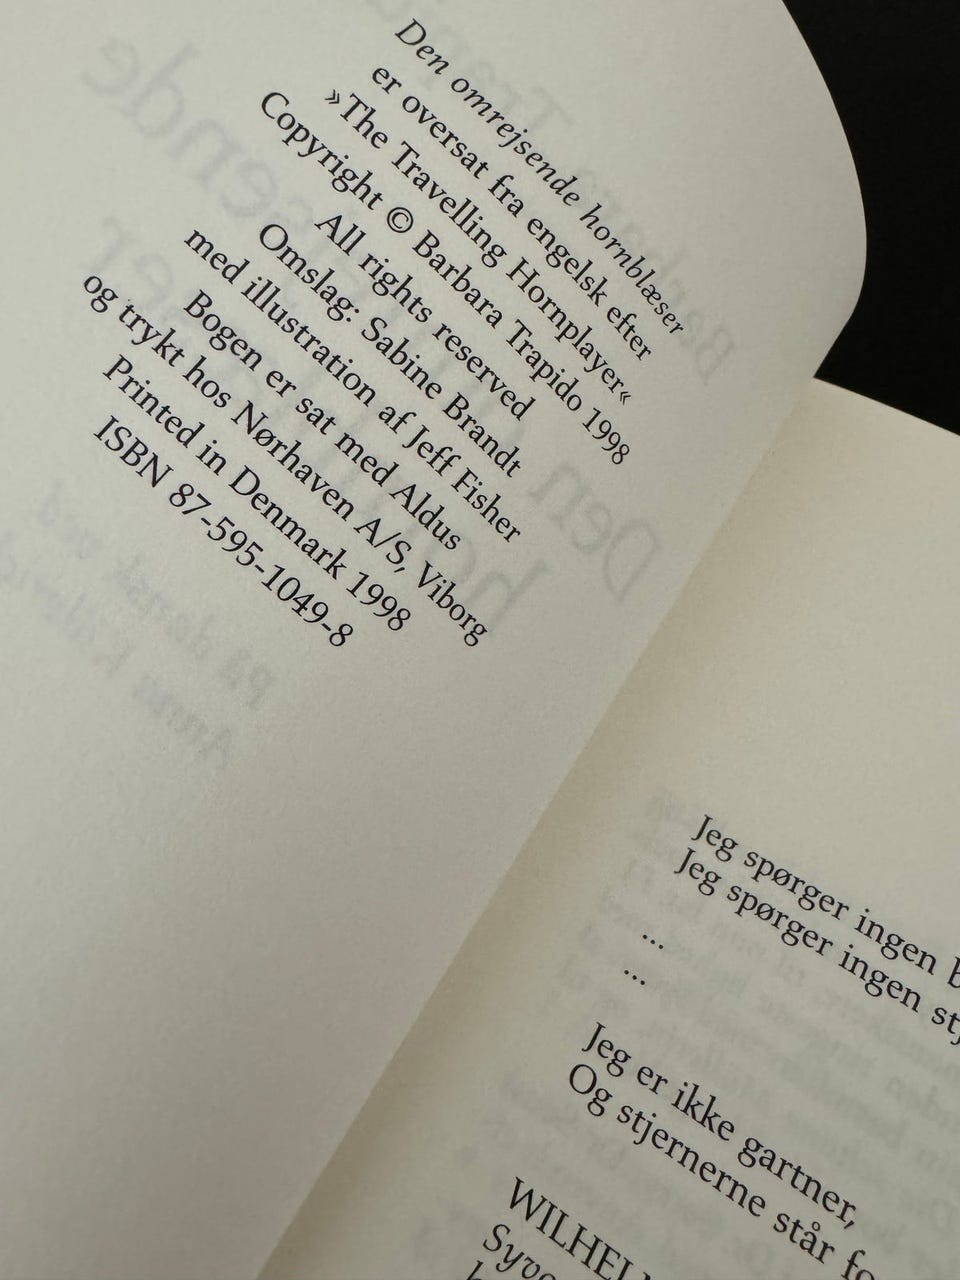 Den omrejsende hornblæser
er oversat fra engelsk efter
»The Travelling Hornplayer«
Copyright © Barbara Trapido 1998
All rights reserved
Omslag: Sabine Brandt
med illustration af Jeff Fisher
Bogen er sat med Aldus
og trykt hos Nørhaven A/S, Viborg
Printed in Denmark 1998
ISBN 87-595-1049-8
Jeg spørger ingen
Jeg spørger ingen
...
...
Jeg er ikke gartner,
Og stjernerne står